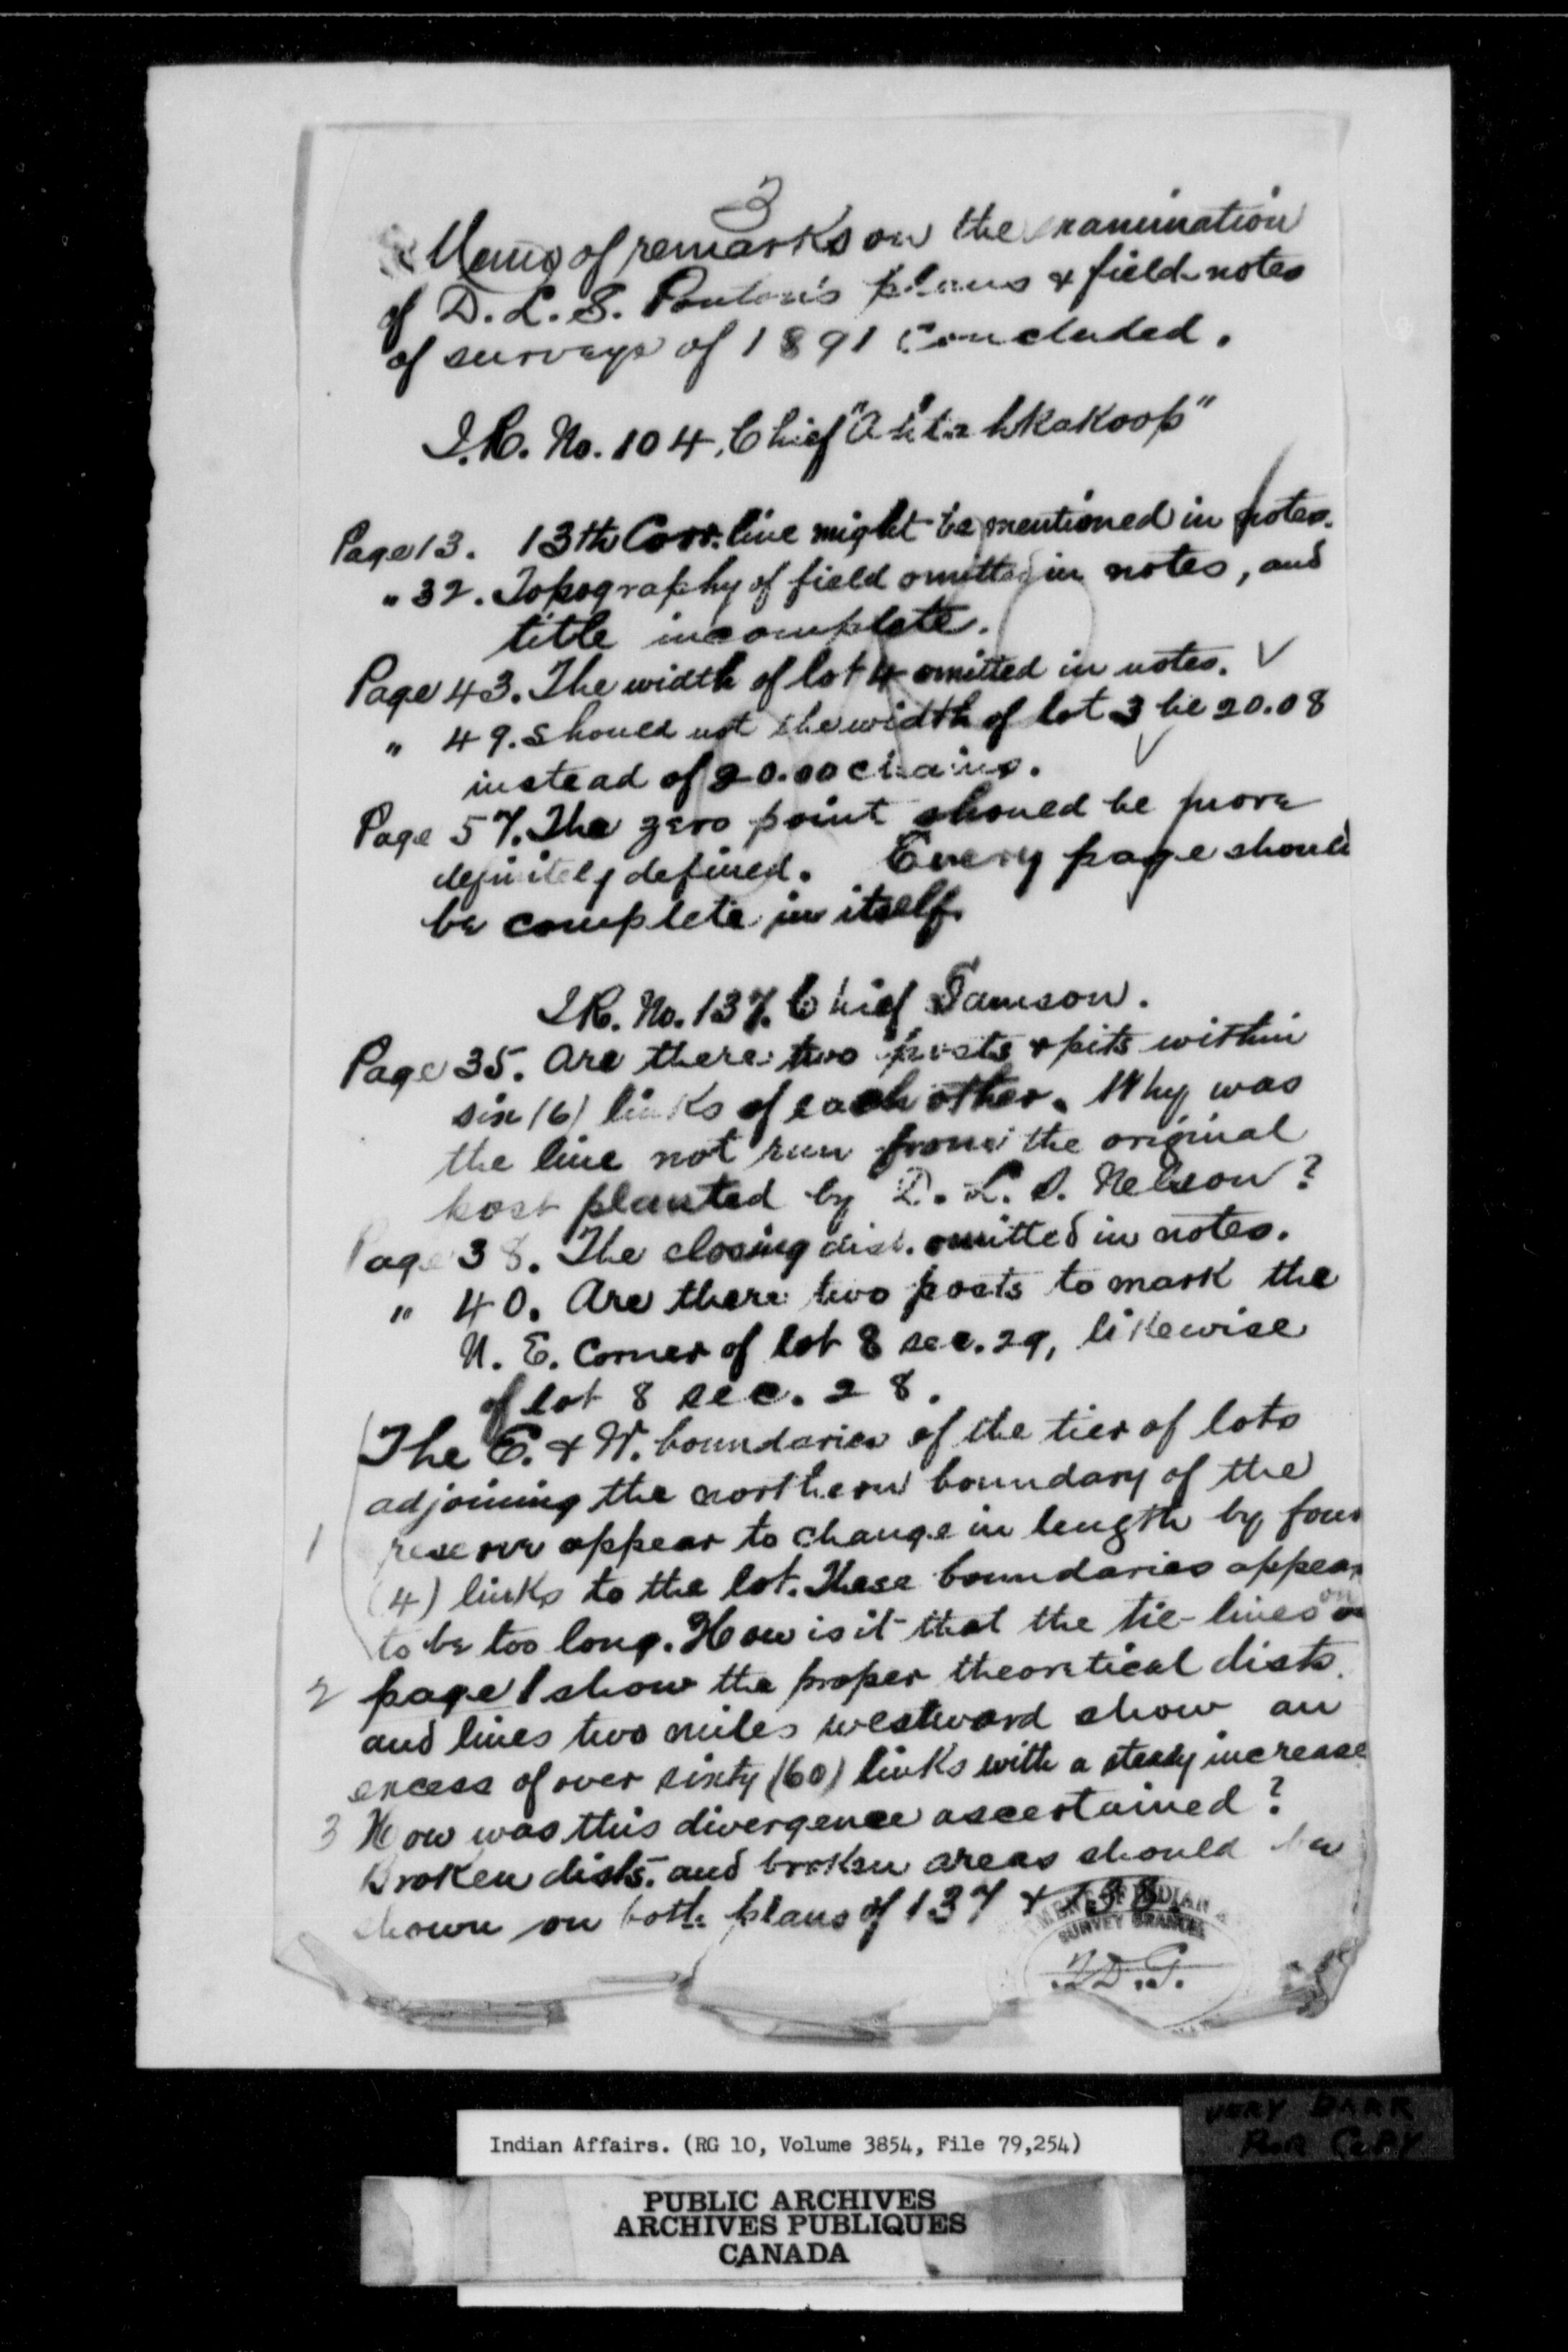 3
Memo of remarks on the examination
of D. L. S. Ponton's plans & field notes
of surveys of 1891 Concluded.
I.R. No. 104, Chief "Ahtahkakoop"
Page 13. 13th Corr. line might be mentioned in notes.
" 32. Topography of field omitted in notes, and
title incomplete.
Page 43. The width of lot 4 omitted in notes. ✓
" 49. Should not the width of lot 3 be 20.08
instead of 20.00 chains. ✓
Page 57. The zero point should be more
definitely defined. Every page should
be complete in itself.
I.R. No. 137. Chief Samson.
Page 35. Are there two posts & pits within
six (6) links of each other. Why was
the line not run from the original
post planted by D. L. S. Nelson?
Page 38. The closing dist. omitted in notes.
" 40. Are there two posts to mark the
N. E. Corner of lot 8 sec. 29, likewise
of lot 8 sec. 28.
The E. & W. boundaries of the tier of lots
adjoining the northern boundary of the
1 reserve appear to change in length by four
(4) links to the lot. These boundaries appear
to be too long. How is it that the tie-lines on
2 page 1 show the proper theoretical dists.
and lines two miles westward show an
excess of over sixty (60) links with a steady increase
3 How was this divergence ascertained?
Broken dists. and broken areas should be
shown on both plans of 137 & 138.
INDIAN
SURVEY BRANCH
VERY DARK
POOR COPY
Indian Affairs. (RG 10, Volume 3854, File 79,254)
PUBLIC ARCHIVES
ARCHIVES PUBLIQUES
CANADA